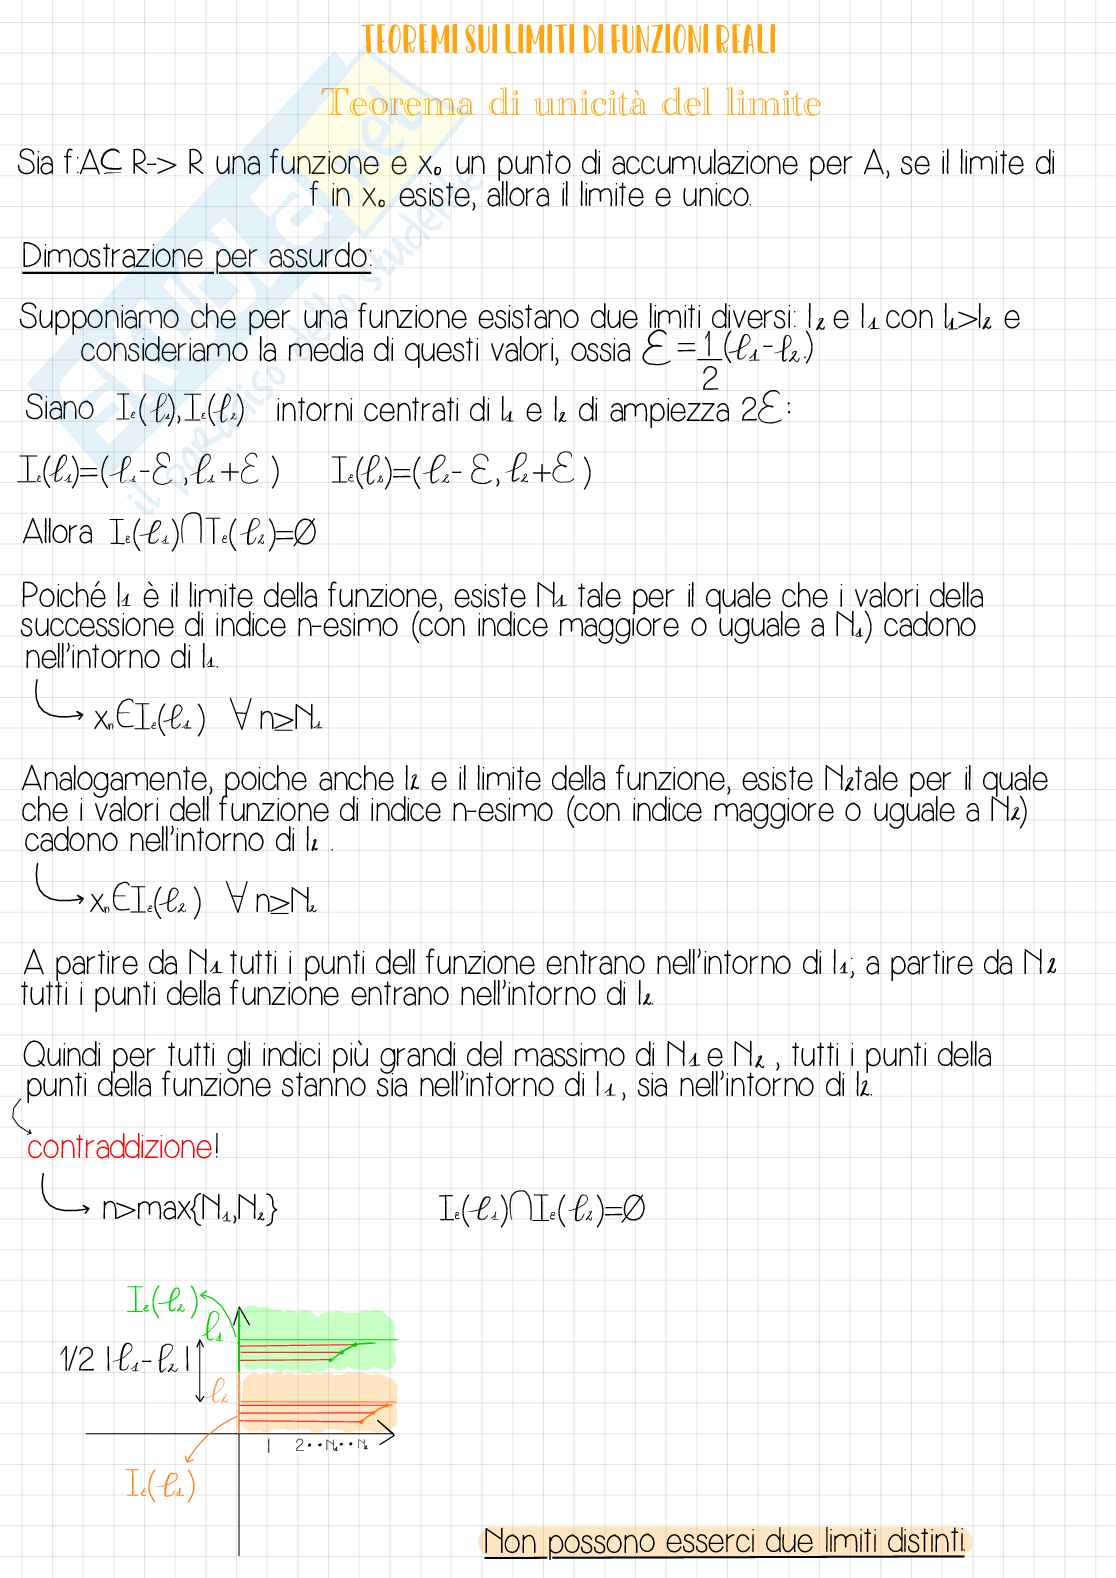 TEOREMI SUI LIMITI DI FUNZIONI REALI
Teorema di unicità del limite
Sia f:A⊆ R-> R una funzione e x₀ un punto di accumulazione per A, se il limite di
f in x₀ esiste, allora il limite e unico.
Dimostrazione per assurdo:
Supponiamo che per una funzione esistano due limiti diversi: l₂ e l₁ con l₁>l₂ e
consideriamo la media di questi valori, ossia Ɛ = 1/2 (ℓ₁-ℓ₂)
Siano Iₑ(ℓ₁), Iₑ(ℓ₂) intorni centrati di l₁ e l₂ di ampiezza 2Ɛ:
Iₑ(ℓ₁)=(ℓ₁-Ɛ, ℓ₁+Ɛ) Iₑ(ℓ₂)=(ℓ₂-Ɛ, ℓ₂+Ɛ)
Allora Iₑ(ℓ₁)⋂Iₑ(ℓ₂)=∅
Poiché l₁ è il limite della funzione, esiste N₁ tale per il quale che i valori della
successione di indice n-esimo (con indice maggiore o uguale a N₁) cadono
nell'intorno di l₁.
xₙ∈Iₑ(ℓ₁) ∀ n≥N₁
Analogamente, poiche anche l₂ e il limite della funzione, esiste N₂tale per il quale
che i valori dell funzione di indice n-esimo (con indice maggiore o uguale a N₂)
cadono nell'intorno di l₂ .
xₙ∈Iₑ(ℓ₂) ∀ n≥N₂
A partire da N₁ tutti i punti dell funzione entrano nell'intorno di l₁; a partire da N₂
tutti i punti della funzione entrano nell'intorno di l₂.
Quindi per tutti gli indici più grandi del massimo di N₁ e N₂ , tutti i punti della
punti della funzione stanno sia nell'intorno di l₁ , sia nell'intorno di l₂.
contraddizione!
n>max{N₁,N₂} Iₑ(ℓ₁)⋂Iₑ(ℓ₂)=∅
Iₑ(ℓ₂)
ℓ₁
1/2 |ℓ₁-ℓ₂|
ℓ₂
1 2••N₁••N₂
Iₑ(ℓ₁)
Non possono esserci due limiti distinti.
SKUOLA.net
il paradiso dello studente